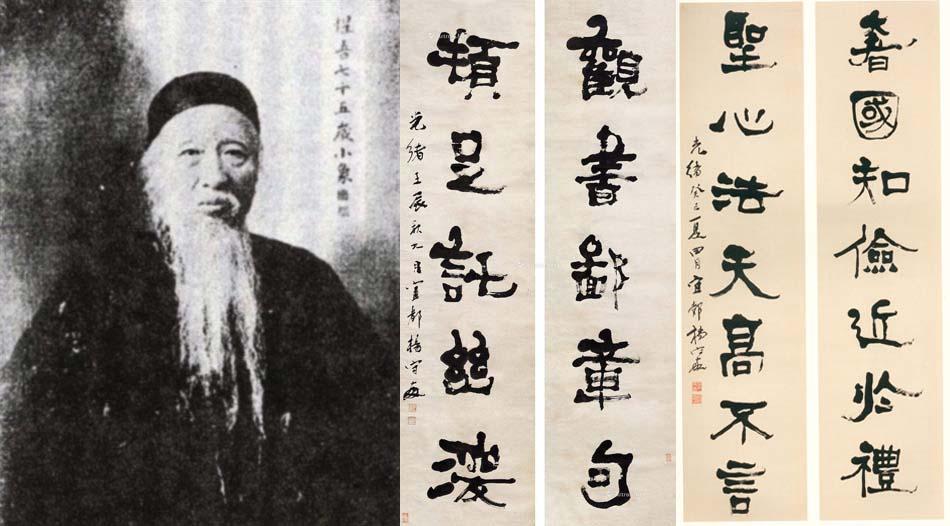 惺吾七十五歲小象
觀書鄙章句
足託
光緒壬辰秋九月宜都楊守敬
國知儉近於禮
聖心法天高不言
光緒癸巳夏四月宜都楊守敬